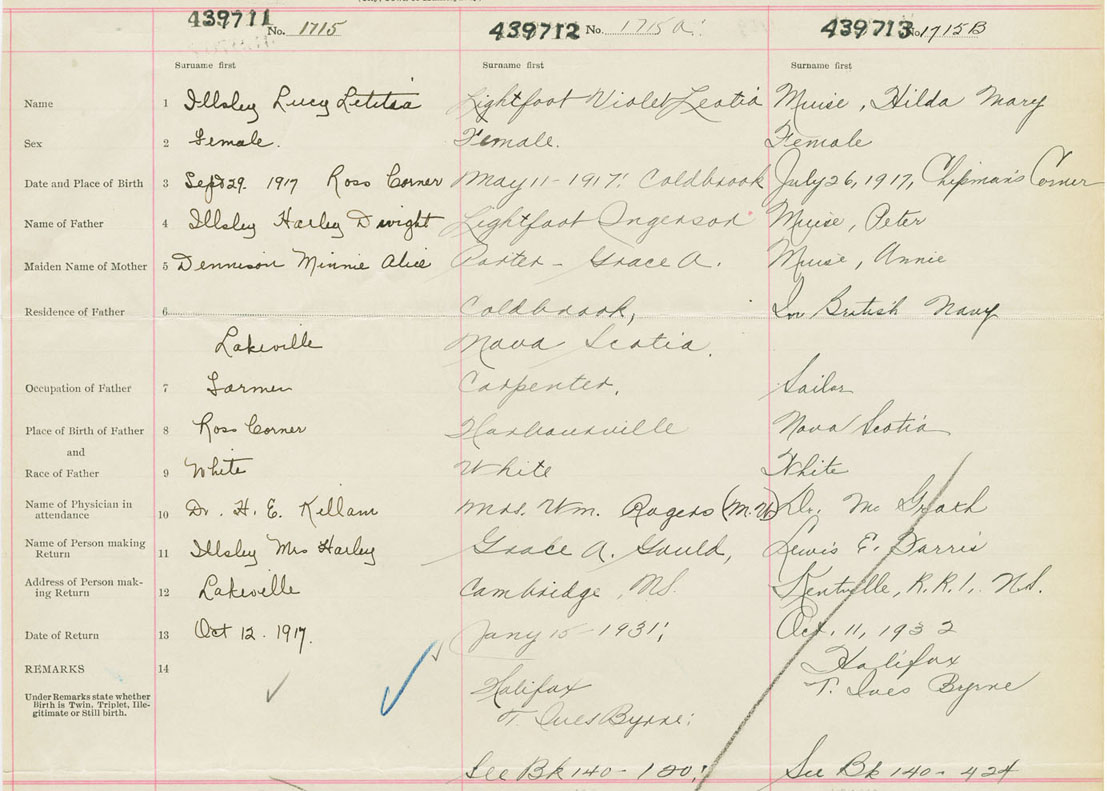 439711 No. 1715
439712 No. 1715 A.
439713 No. 1715B
Surname first Surname first Surname first
Name 1 Illsley Lucy Letitia Lightfoot Violet Leotia Muise, Hilda Mary
Sex 2 Female. Female. Female
Date and Place of Birth 3 Sept 29. 1917 Ross Corner May 11-1917. Coldbrook July 26, 1917, Chipman's Corner
Name of Father 4 Illsley Harley Dwight Lightfoot Ingerson Muise, Peter
Maiden Name of Mother 5 Dennison Minnie Alice Porter - Grace A. Muise, Annie
Residence of Father 6 Coldbrook, In British Navy
Lakeville Nova Scotia.
Occupation of Father 7 Farmer Carpenter. Sailor
Place of Birth of Father 8 Ross Corner Harbourville Nova Scotia
and
Race of Father 9 White White White
Name of Physician in
attendance 10 Dr. H. E. Killam Mrs. Wm. Rogers (M.W) Dr. Mc Grath
Name of Person making
Return 11 Illsley Mrs Harley Grace A. Gould, Lewis E. Darris
Address of Person mak-
ing Return 12 Lakeville Cambridge, N.S. Kentville, R.R.1, N.S.
Date of Return 13 Oct 12. 1917. Jany 15-1931. Oct. 11, 1932
REMARKS 14 Halifax Halifax
Under Remarks state whether
Birth is Twin, Triplet, Ille-
gitimate or Still birth.
T. Ives Byrne. T. Ives Byrne
See Bk 140- See Bk 140- 424